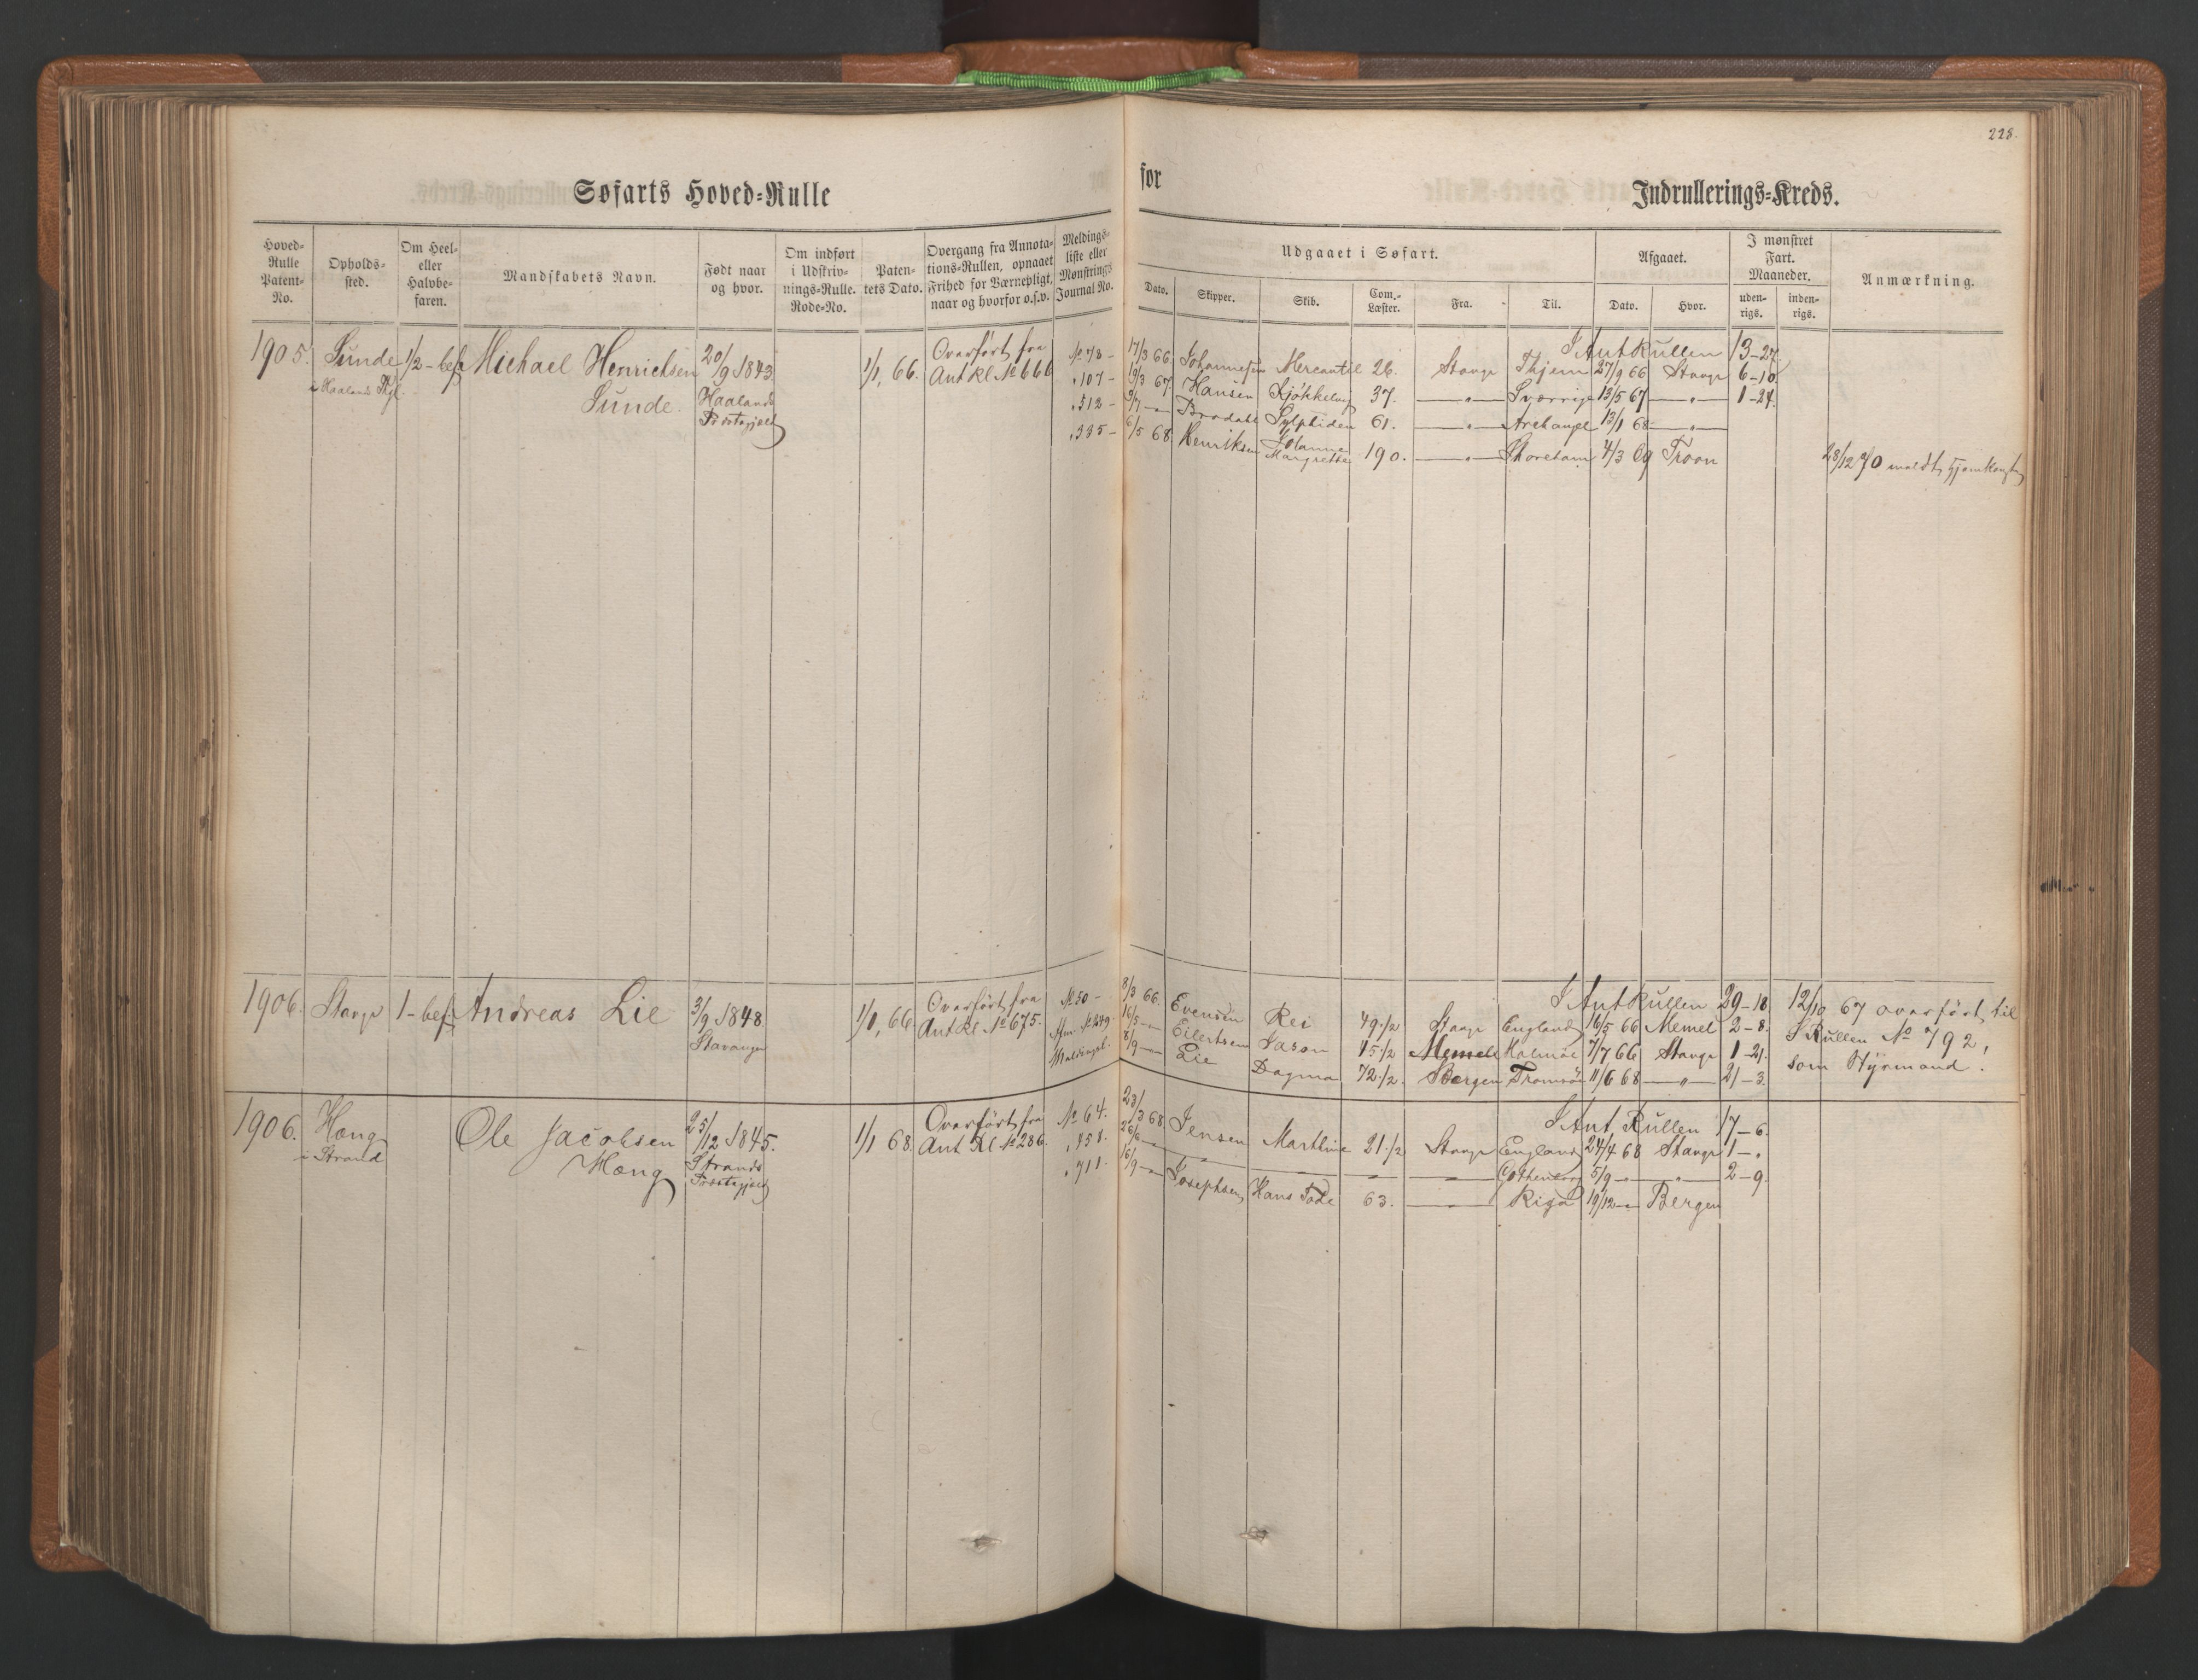 228.
Søfarts Hoved-Rulle
for
Indrullerings-Kreds.
Hoved-Rulle Patent-No.
Opholds-sted.
Om Heel- eller Halvbe-faren.
Mandskabets Navn.
Født naar og hvor.
Om indført i Udskriv-nings-Rulle. Rode-No.
Paten-tets Dato.
Overgang fra Annota-tions-Rullen, opnaaet Frihed for Værnepligt, naar og hvorfor o.s.v.
Meldings-liste eller Mønstrings Journal No.
Udgaaet i Søfart.
Dato.
Skipper.
Skib.
Com.-Læster.
Fra.
Til.
Afgaaet.
Dato.
Hvor.
I mønstret Fart. Maaneder.
uden-rigs.
inden-rigs.
Anmærkning.
1905. Sunde 1/2-bef Michael Henrichsen 20/9 1843 1/1, 66. Overført fra No 78-
i Haalands Pgl. Sunde. Haalands Præstegjeld Ant Rl No 666 " 107-
" 512-
" 335-
I Ant Rullen 13-27.
17/3 66 Johannesen Mercantil 26. Stavgr Thjem 27/9 66 Stavgr 6-10.
19/3 67 Hansen Kjökkelvig 37. —"— Sverrige 13/5 67 —"— 1-24.
Brodahl Sylphiden 61. —"— Archangel 13/1 68 —"—
6/5 68 Henriksen Johanne Margrethe 190. —"— Shoreham 4/3 69 Troon
28/12 70 meldt hjemkongst
1906. Stavgr 1-bef. Andreas Lie 3/9 1848 Stavanger 1/1, 66. Overført fra Ant Rl No 675. No 50-
I Ant Rullen 29-18.
8/3 66. Evensen Rei 49 1/2 Stavgr England 16/5 66 Memel 2-8.
16/5 — Eilertsen Jason 75 1/2 Memel Malmöe 7/7 66 Stavgr 1-21.
8/9 — Lie Dagmar 72 1/2. Bergen Tromsöe 11/6 68 —"— 21-3.
12/10 67 overført til
S Rullen No 792,
som Styrmand.
1906. Hæng Ole Jacobsen 25/12 1845. 1/1 68. Overført fra No 64.
i Strand Hæng Strands Præstegjeld Ant Rl No 286. " 458.
" 711.
I Ant Rullen 17-6.
23/3 68 Jensen Marthine 21 1/2 Stavgr England 24/4 68 Stavgr 1-".
26/6 — — — — Gothenborg 5/9 " — " — 2-9.
16/9 — Josephsen Hans Tode 63. — Riga 19/12 — Bergen